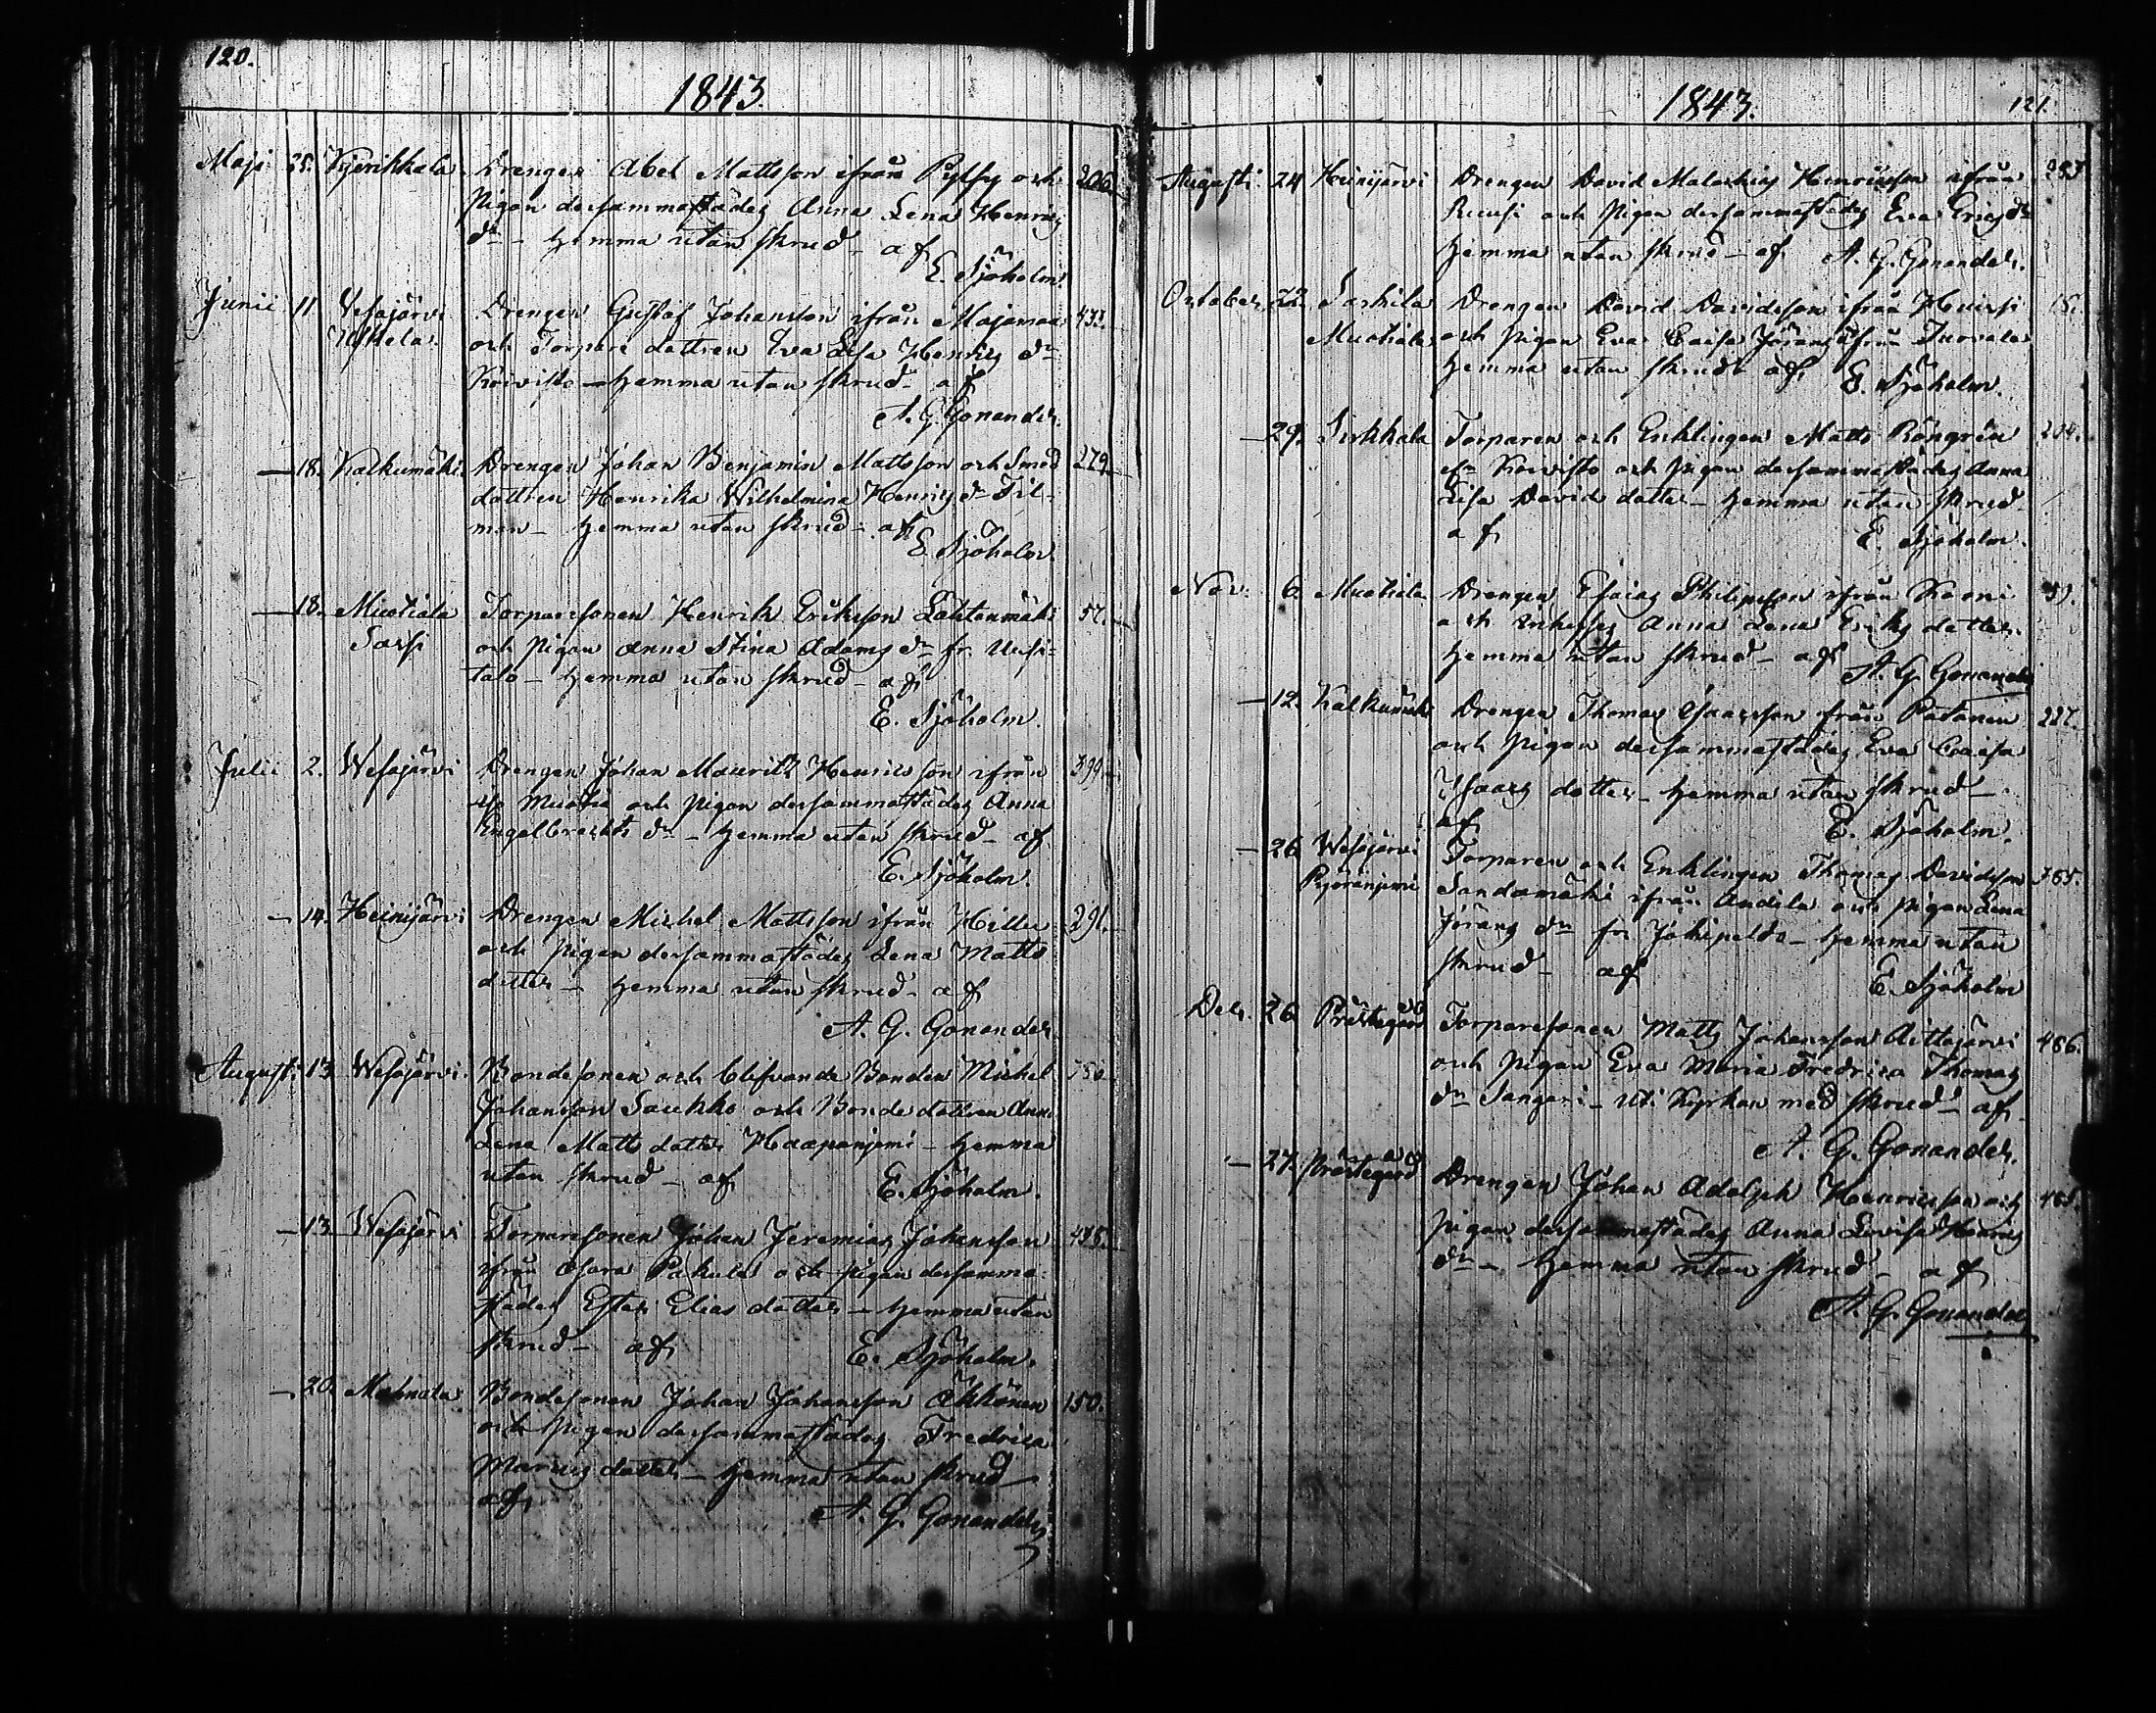 120.
1843.
Maji 25. Kyerikkala Drengen Abel Mattsson ifrån Pylsy och 206.
Pigan dersammastädes Anna Lena Henriks
dr - hemma utan skrud - af
E. Sjöholm.
Junii 11 Vesajärvi Drengen Gustaf Johansson ifrån Majamaa 433.
Uttela. och Torpare dottren Eva Lisa Henriks dr
Koivisto - hemma utan skrud - af
A. G. Gonander.
— 18. Kalkumäki Drengen Johan Benjamin Mattsson och Smed 279.
dottren Henrika Wilhelmina Henriks dr Til-
man - hemma utan skrud - af
E. Sjöholm.
— 18. Muotiala Torparesonen Henrik Eriksson Lahtenmäki 57.
Sassi och Pigan Anna Stina Adams dr fr. Uusi-
talo - hemma utan skrud - af
E. Sjöholm.
Julii 2. Wesajärvi Drengen Johan Mauritz Henriksson ifrån 399.
och Pigan dersammastädes Anna
Engelbrechts dr - hemma utan skrud - af
E. Sjöholm.
— 14. Heinijärvi Drengen Michel Mattsson ifrån Hillu 291.
och Pigan dersammastädes Lena Matts
dotter - hemma utan skrud - af
A. G. Gonander.
Augusti 13 Wesajärvi. Bondesonen och blifvande Bonden Michel
Johansson Saukko och Bonde dottren Anna
Lena Matts dotter Haapaniemi - hemma
utan skrud - af E. Sjöholm.
— 13 Wesajärvi Torparesonen Johan Jeremias Johansson
ifrån Pakula och pigan dersamma-
städes Ester Elias dotter - hemma utan
skrud - af E. Sjöholm.
— 20. Mahnala Bondesonen Johan Johansson 150.
och pigan dersammastädes Fredrica
dotter - hemma utan skrud -
af
A. G. Gonander.
1843. 121.
Augusti 24 Heinijärvi Drengen David Malachias Henriksson ifrån
och Pigan dersammastädes Eva Erics dr
hemma utan skrud - af A. G. Gonander.
October 22. Drengen David Davidsson ifrån
Muotiala och pigan Eva Caisa ifrån
hemma utan skrud - af E. Sjöholm.
— 29. Sirkkala Torparen och Enklingen Matts Röngrén 204.
Koivisto och Pigan dersammastädes Anna
Lisa David dotter - hemma utan skrud -
af E. Sjöholm.
Nov: 6. Muotiala Drengen Esaias Philipsson ifrån
och Anna Lena Eriks dotter
hemma utan skrud - af
A. G. Gonander
— 12. Kalkumäki Drengen Thomas Isaacsson ifrån Patanen 287.
och Pigan dersammastädes Eva Caisa
Isaacs dotter - hemma utan skrud -
af E. Sjöholm.
— 26 Wesajärvi Torparen och Enklingen Thomas Davidsson 385.
Pyöräniemi Sandamäki ifrån Andila och Pigan Lena
Jörans dr fr. - hemma utan
skrud - af E. Sjöholm
Dec. 26 Prestegård Torparesonen Matts Johansson Aittojärvi 486.
och Pigan Eva Maria Fredrica Thomas
dr Sangari - uti Kyrkan med skrud - af
A. G. Gonander.
— 27. Prestegård Drengen Johan Adolph Henriksson och
Pigan dersammastädes Anna Lovisa Henriks
dr - hemma utan skrud - af
A. G. Gonander